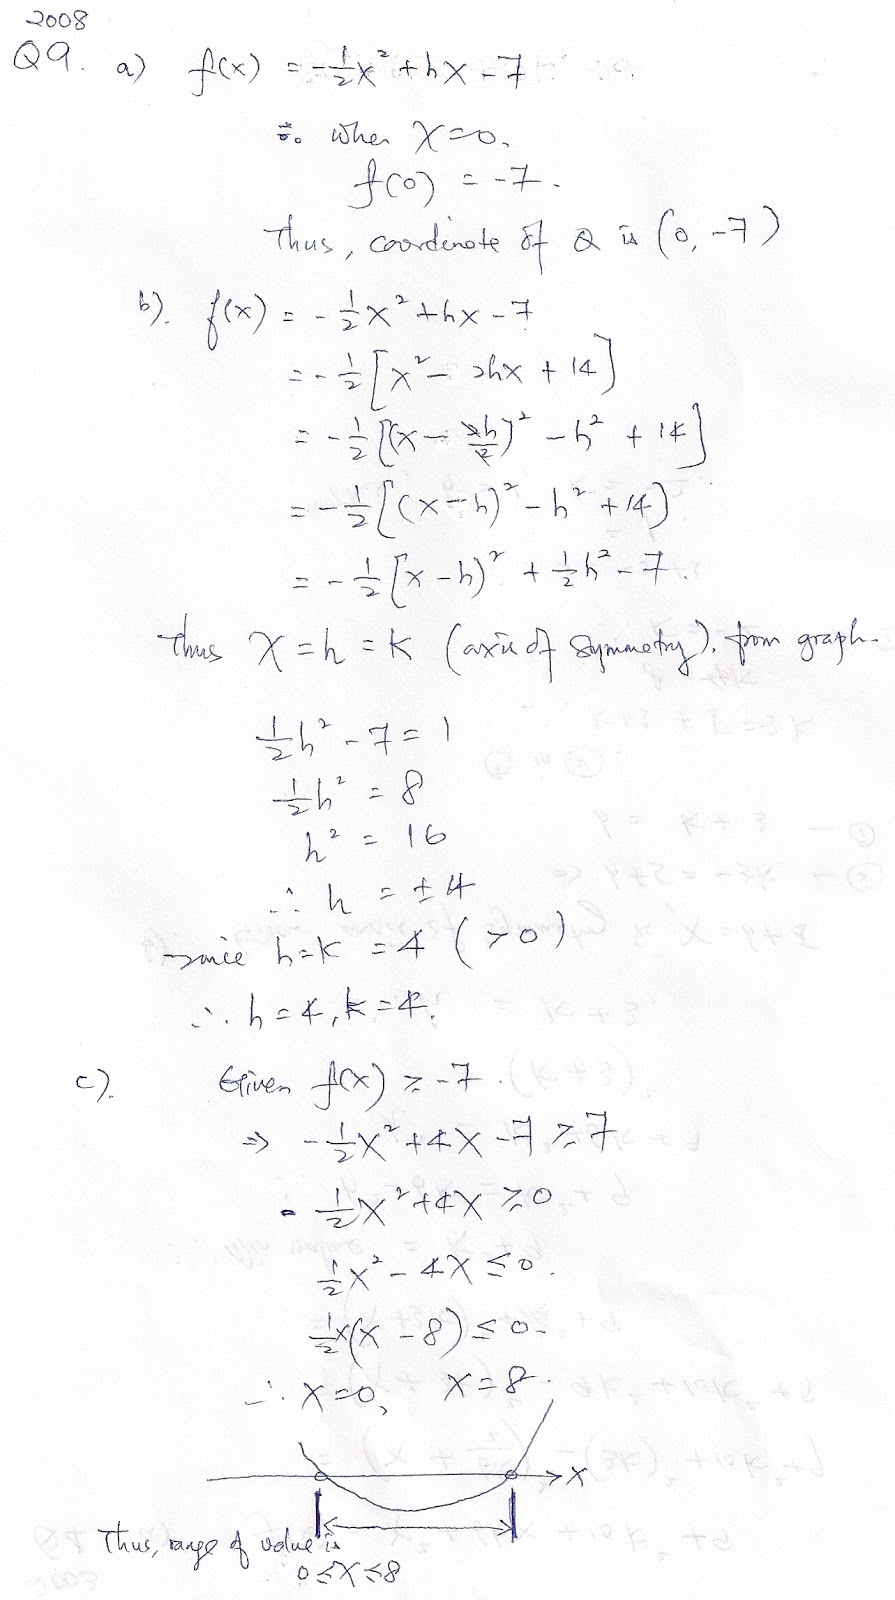 2008
Q9. a) f(x) = -1/2x² + hx - 7
∴ when x=0,
f(0) = -7.
Thus, coordinate of Q is (0, -7)
b). f(x) = -1/2x² + hx - 7
= -1/2[x² - 2hx + 14]
= -1/2[(x - 2h/2)² - h² + 14]
= -1/2[(x-h)² - h² + 14]
= -1/2[x-h)² + 1/2h² - 7.
Thus x = h = k (axis of symmetry), from graph.
1/2h² - 7 = 1
1/2h² = 8
h² = 16
∴ h = ±4
since h=k = 4 (>0)
∴ h=4, k=4.
c). Given f(x) ≥ -7.
⇒ -1/2x² + 4x - 7 ≥ 7
-1/2x² + 4x ≥ 0
1/2x² - 4x ≤ 0.
1/2x(x - 8) ≤ 0.
∴ x=0, x=8.
x
Thus, range of value is
0≤x≤8